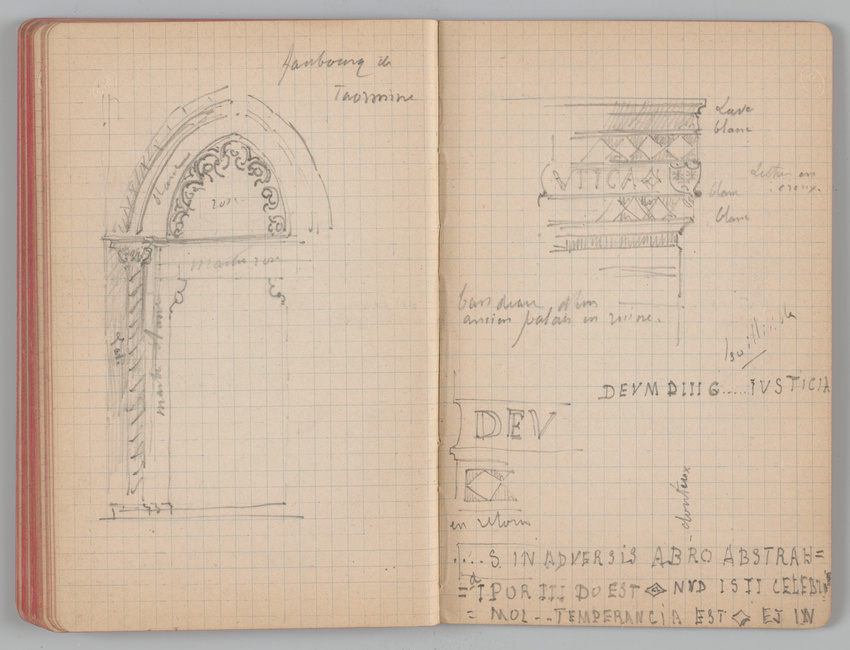 Faubourg de
Taormine
blanc
rose
marbre rose
marbre blanc
Lave
blanc
STICA
Lettres en
creux.
blanc
blanc
bandeau d'un
ancien palais en ruine.
DEVM DIIIG.....IVSTICIA
DEV
en retour
douteux
....S IN ADVERSIS ABRO ABSTRAH=
=TPORIII DO EST NVD ISII CELEBRI
= MOL--TEMPERANCIA EST EJ IN